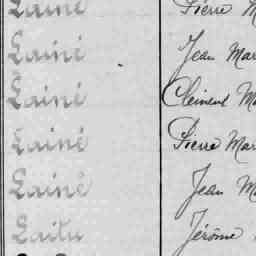 Lainé Pierre
Lainé Jean Mar
Lainé Clément Ma
Lainé Pierre Mar
Lainé Jean M
Laitu Jérôme